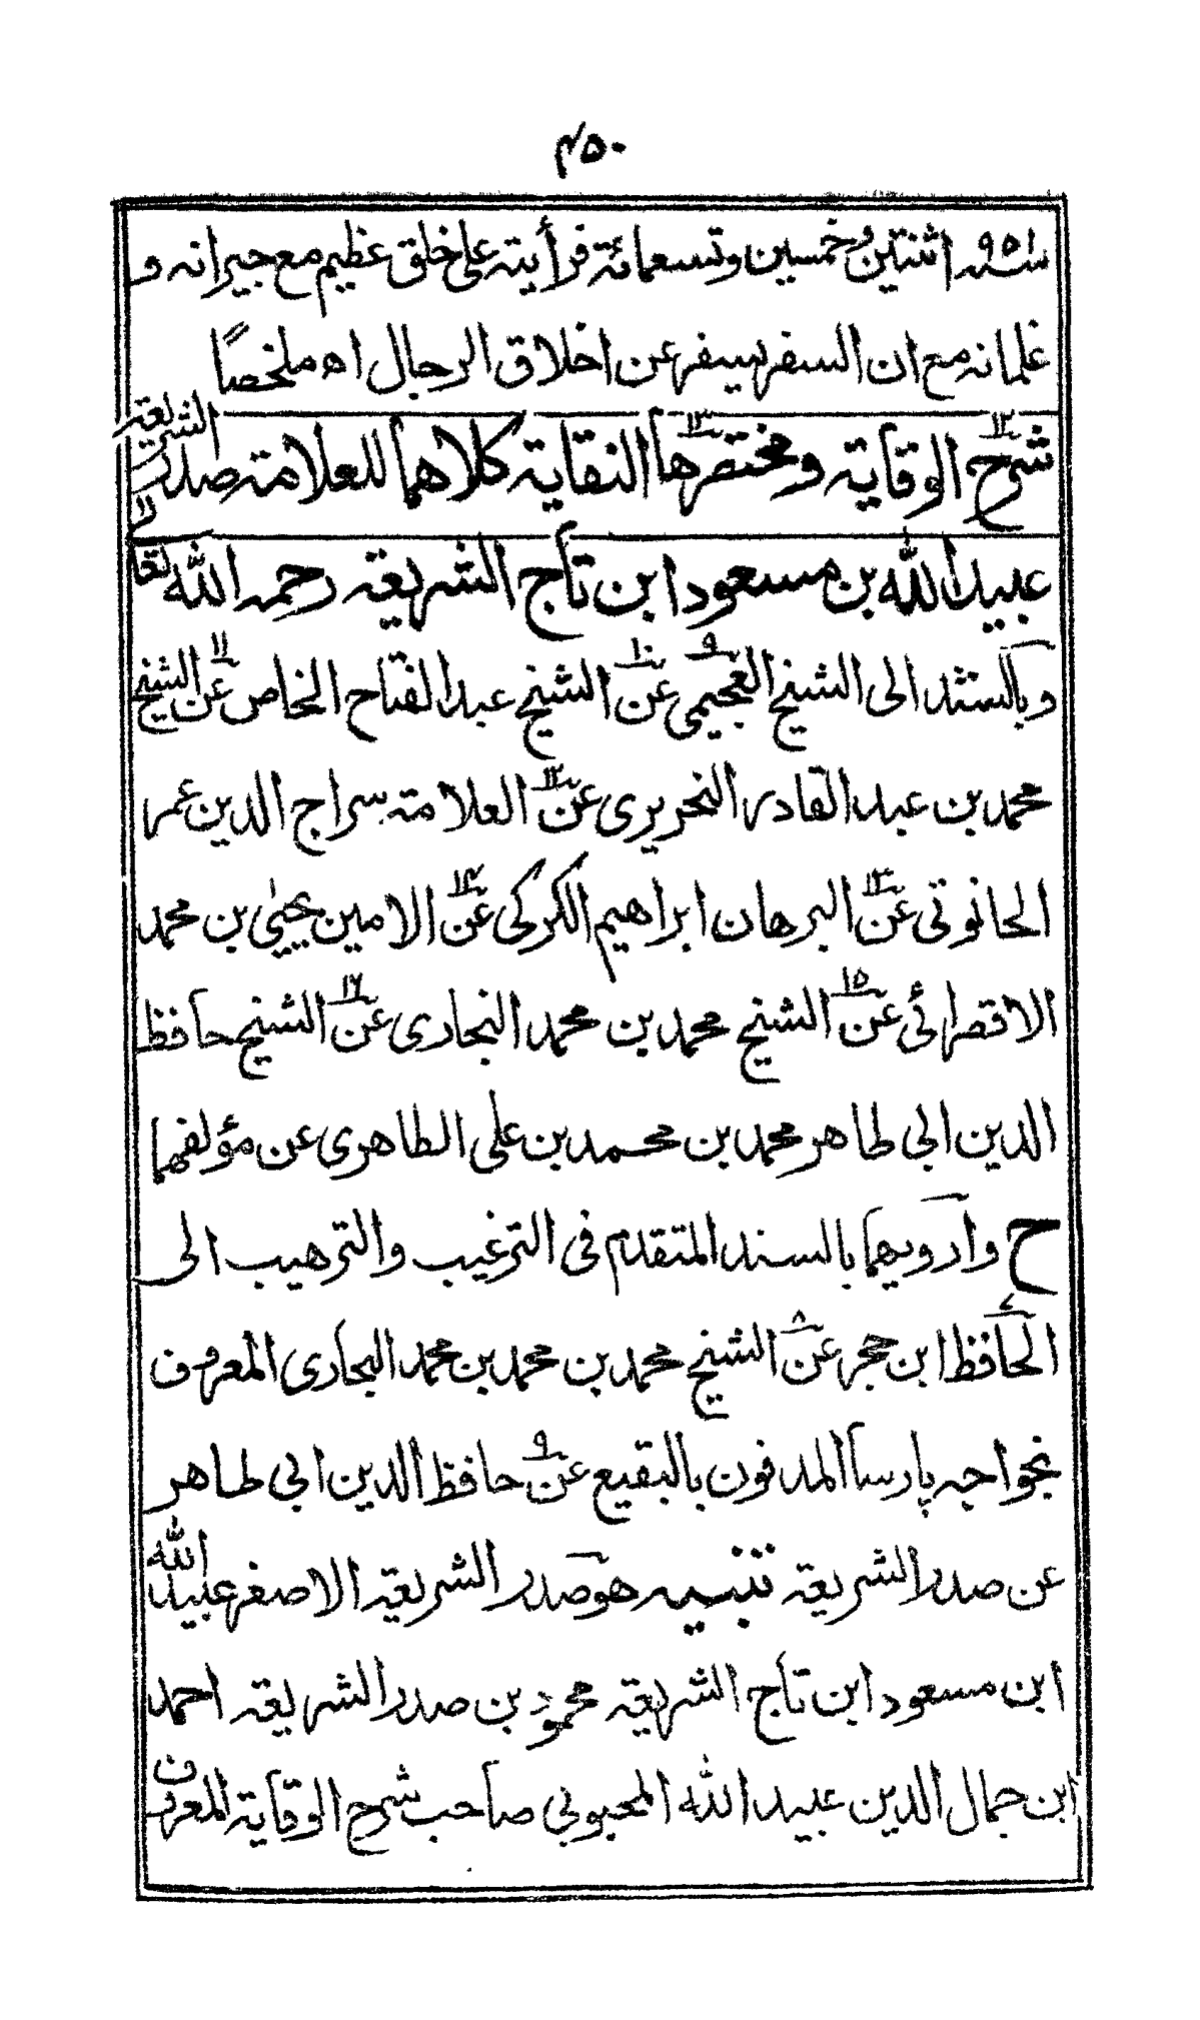 ۴۵۰
سنہ ٩٥٢ اثنتین وخمسین وتسعمائة فرأیته علی خلق عظیم مع جیرانه و
غلمانه مع ان السفر یسفر عن اخلاق الرجال اھ ملخصًا
شرح الوقایة ومختصرها النقایة کلاهما للعلامة صدر الشریعة
عبید الله بن مسعود ابن تاج الشریعة رحمه الله تعالی
وبالسند الی الشیخ العجیمی عن الشیخ عبد الفتاح الخاص عن الشیخ
محمد بن عبد القادر النحریری عن العلامة سراج الدین عمر
الحانوتی عن البرهان ابراهیم الکرکی عن الامین یحیٰی بن محمد
الاقصرائی عن الشیخ محمد بن محمد البخاری عن الشیخ حافظ
الدین ابی طاهر محمد بن محمد بن علی الطاهری عن مؤلفهما
ح وارویهما بالسند المتقدم فی الترغیب والترهیب الی
الحافظ ابن حجر عن الشیخ محمد بن محمد بن محمد البخاری المعروف
بخواجه پارسا المدفون بالبقیع عن حافظ الدین ابی طاهر
عن صدر الشریعة تنبیه هو صدر الشریعة الاصغر عبید الله
ابن مسعود ابن تاج الشریعة محمود بن صدر الشریعة احمد
ابن جمال الدین عبید الله المحبوبی صاحب شرح الوقایة المعروف